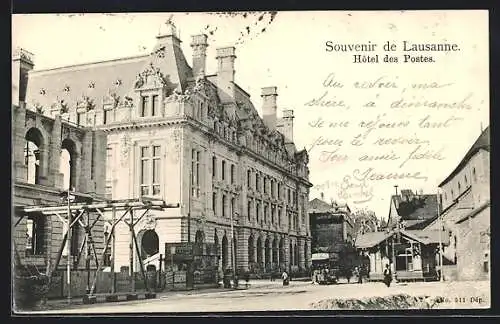 Souvenir de Lausanne.
Hôtel des Postes.
Au revoir, ma
chère, à dimanche
Je me réjouis tant
pour te revoir.
Ton amie fidèle
Jeanne
No. 511 Dép.